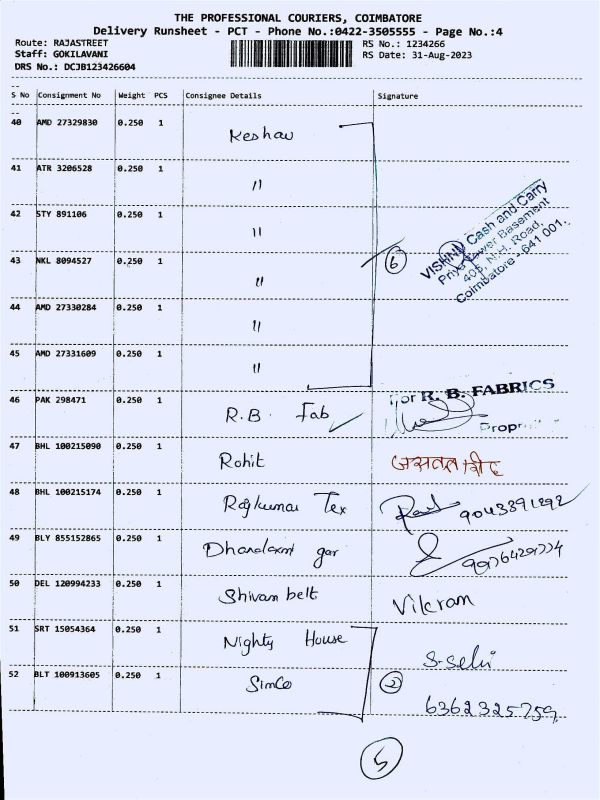 THE PROFESSIONAL COURIERS, COIMBATORE
Delivery Runsheet - PCT - Phone No.:0422-3505555 - Page No.:4
Route: RAJASTREET RS No.: 1234266
Staff: GOKILAVANI RS Date: 31-Aug-2023
DRS No.: DCJB123426604
S No Consignment No Weight PCS Consignee Details Signature
40 AMD 27329830 0.250 1 Keshav
41 ATR 3206528 0.250 1 "
42 STY 891106 0.250 1 "
VISHNU Cash and Carry
Priya Tower Basement
405, N.H. Road,
Coimbatore - 641 001.
43 NKL 8094527 0.250 1 " 6
44 AMD 27330284 0.250 1 "
45 AMD 27331609 0.250 1 "
46 PAK 298471 0.250 1 R.B. Fab For R. B. FABRICS
47 BHL 100215090 0.250 1 Rohit
48 BHL 100215174 0.250 1 Rajkumar Tex 9043391292
49 BLY 855152865 0.250 1 Dhanalaxmi gar
50 DEL 120994233 0.250 1 Shivam belt Vikram
51 SRT 15054364 0.250 1 Nighty House S. Selvi
52 BLT 100913605 0.250 1 SimCo 2 6362325759
5